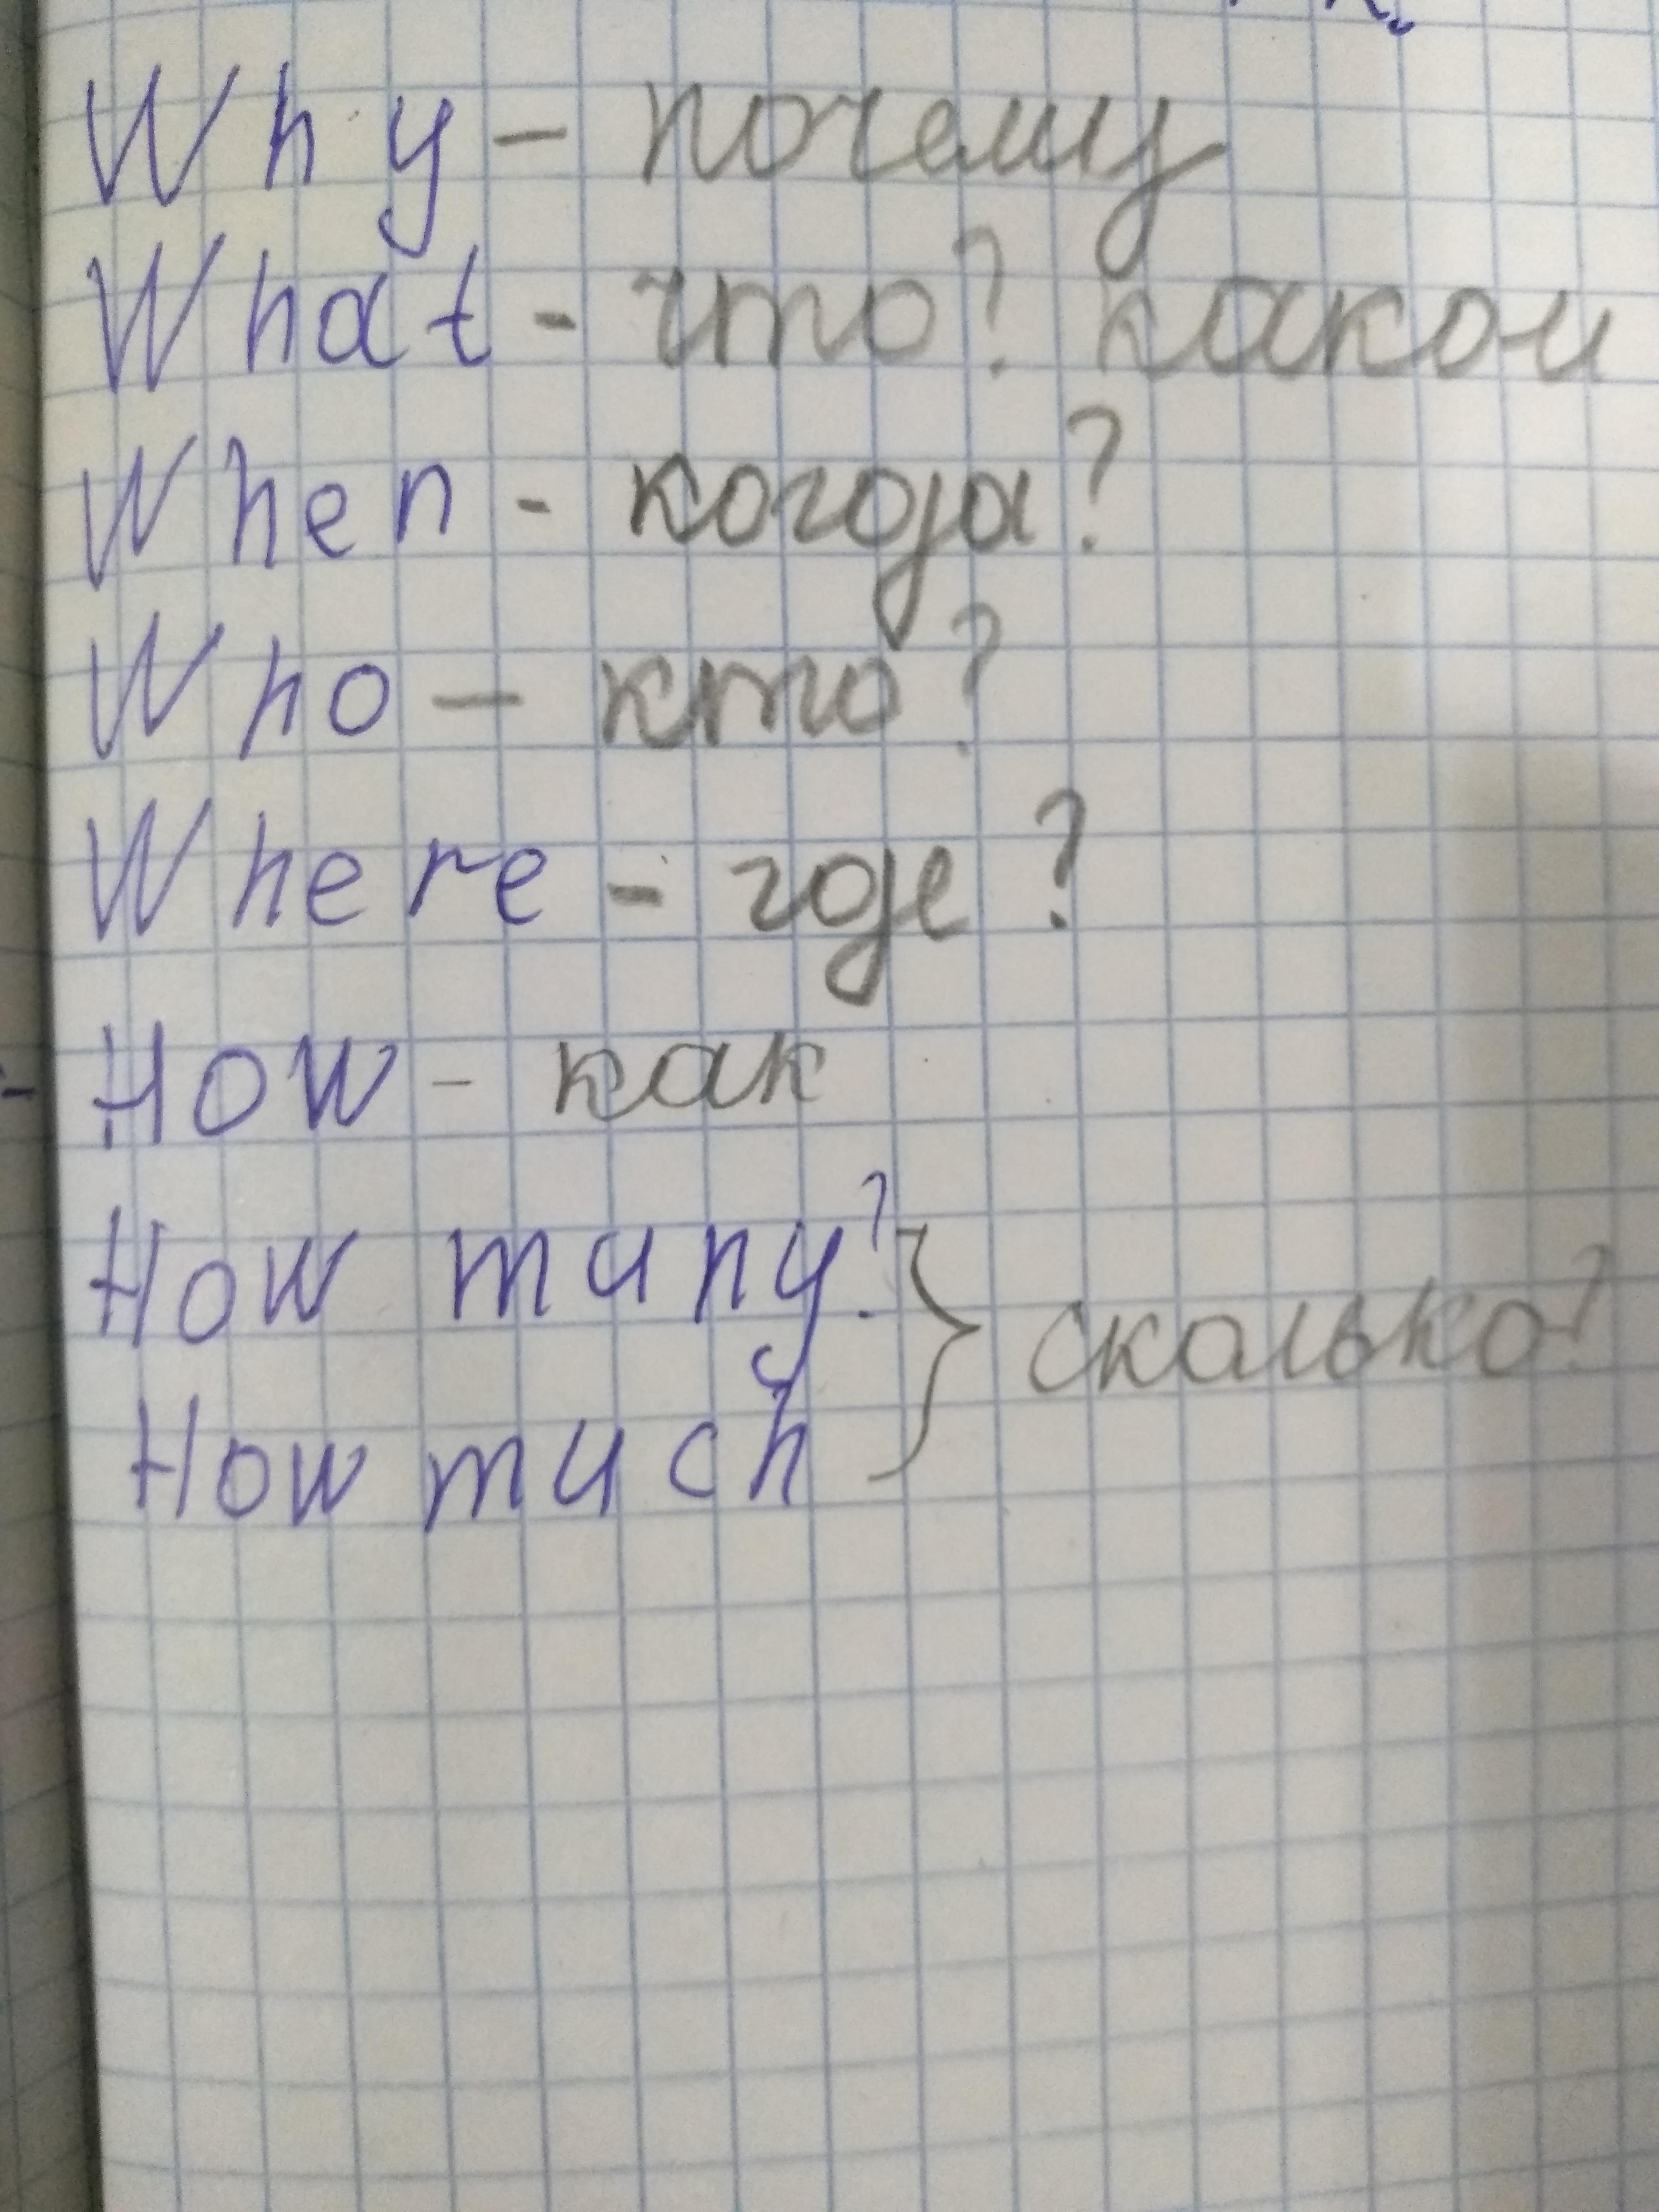 Why – почему
What - что? какои
When - когда?
Who – кто?
Where - где?
How - как
How many?
} сколько?
How much